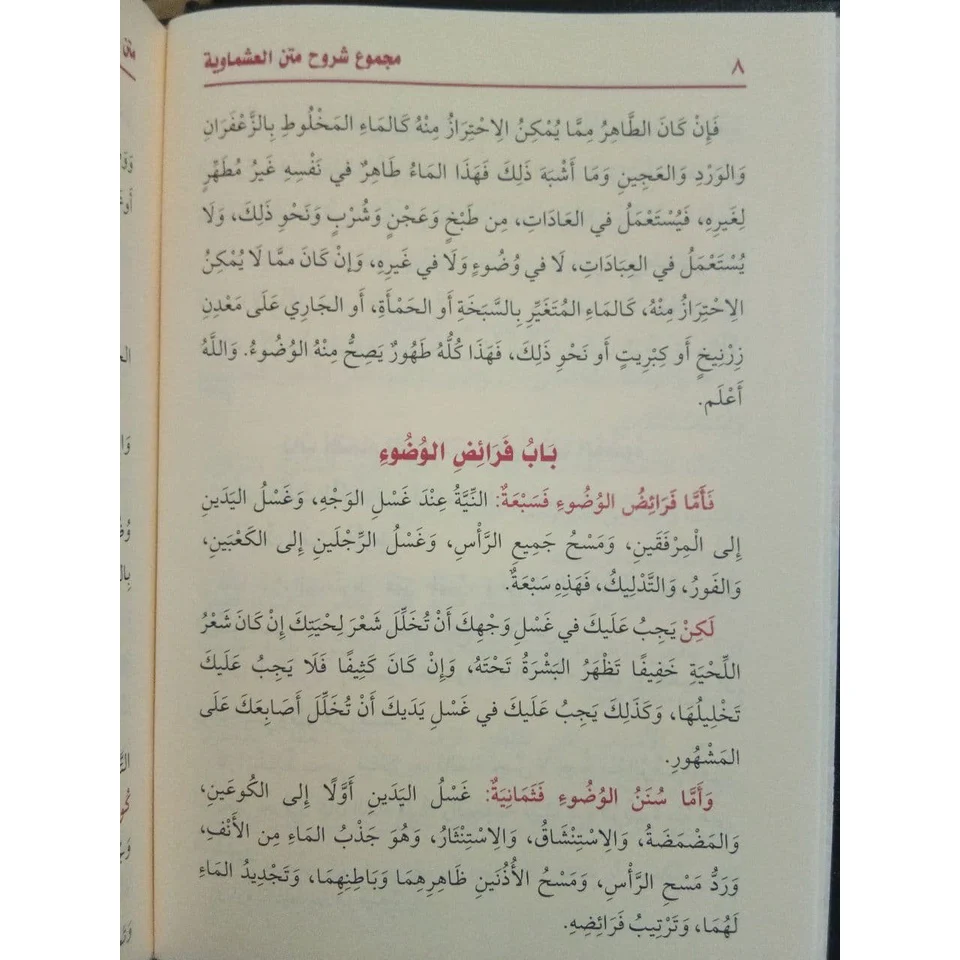 ٨ مجموع شروح متن العشماوية
فَإِنْ كَانَ الطَّاهِرُ مِمَّا يُمْكِنُ الِاحْتِرَازُ مِنْهُ كَالمَاءِ المَخْلُوطِ بِالزَّعْفَرَانِ
وَالوَرْدِ وَالعَجِينِ وَمَا أَشْبَهَ ذَلِكَ فَهَذَا المَاءُ طَاهِرٌ في نَفْسِهِ غَيرُ مُطَهِّرٍ
لِغَيرِهِ، فَيُسْتَعْمَلُ في العَادَاتِ، مِن طَبْخٍ وَعَجْنٍ وَشُرْبٍ وَنَحْوِ ذَلِكَ، وَلَا
يُسْتَعْمَلُ في العِبَادَاتِ، لَا في وُضُوءٍ وَلَا في غَيرِهِ، وَإنْ كَانَ ممَّا لَا يُمْكِنُ
الِاحْتِرَازُ مِنْهُ، كَالمَاءِ المُتَغَيِّرِ بِالسَّبَخَةِ أَو الحَمْأَةِ، أَو الجَارِي عَلَى مَعْدِنِ
زِرْنِيخٍ أَو كِبْرِيتٍ أَو نَحْوِ ذَلِكَ، فَهَذَا كُلُّهُ طَهُورٌ يَصِحُّ مِنْهُ الوُضُوءُ. وَاللَّهُ
أَعْلَم.
بَابُ فَرَائِضِ الوُضُوءِ
فَأَمَّا فَرَائِضُ الوُضُوءِ فَسَبْعَةٌ: النِّيَّةُ عِنْدَ غَسْلِ الوَجْهِ، وَغَسْلُ اليَدَينِ
إِلى الْمِرْفَقَينِ، وَمَسْحُ جَمِيعِ الرَّأْسِ، وَغَسْلُ الرِّجْلَينِ إِلى الكَعْبَينِ،
وَالفَورُ، وَالتَّدْلِيكُ، فَهَذِهِ سَبْعَةٌ.
لَكِنْ يَجِبُ عَلَيكَ في غَسْلِ وَجْهِكَ أَنْ تُخَلِّلَ شَعْرَ لِحْيَتِكَ إِنْ كَانَ شَعْرُ
اللِّحْيَةِ خَفِيفًا تَظْهَرُ البَشَرَةُ تَحْتَهُ، وَإِنْ كَانَ كَثِيفًا فَلَا يَجِبُ عَلَيكَ
تَخْلِيلُهَا، وَكَذَلِكَ يَجِبُ عَلَيكَ في غَسْلِ يَدَيكَ أَنْ تُخَلِّلَ أَصَابِعَكَ عَلَى
المَشْهُورِ.
وَأَمَّا سُنَنُ الوُضُوءِ فَثَمَانِيَةٌ: غَسْلُ اليَدَينِ أَوَّلًا إِلى الكُوعَينِ،
وَالمَضْمَضَةُ، وَالِاسْتِنْشَاقُ، وَالِاسْتِنْثَارُ، وَهُوَ جَذْبُ المَاءِ مِن الأَنْفِ،
وَرَدُّ مَسْحِ الرَّأْسِ، وَمَسْحُ الأُذُنَينِ ظَاهِرِهِمَا وَبَاطِنِهِمَا، وَتَجْدِيدُ المَاءِ
لَهُمَا، وَتَرْتِيبُ فَرَائِضِهِ.